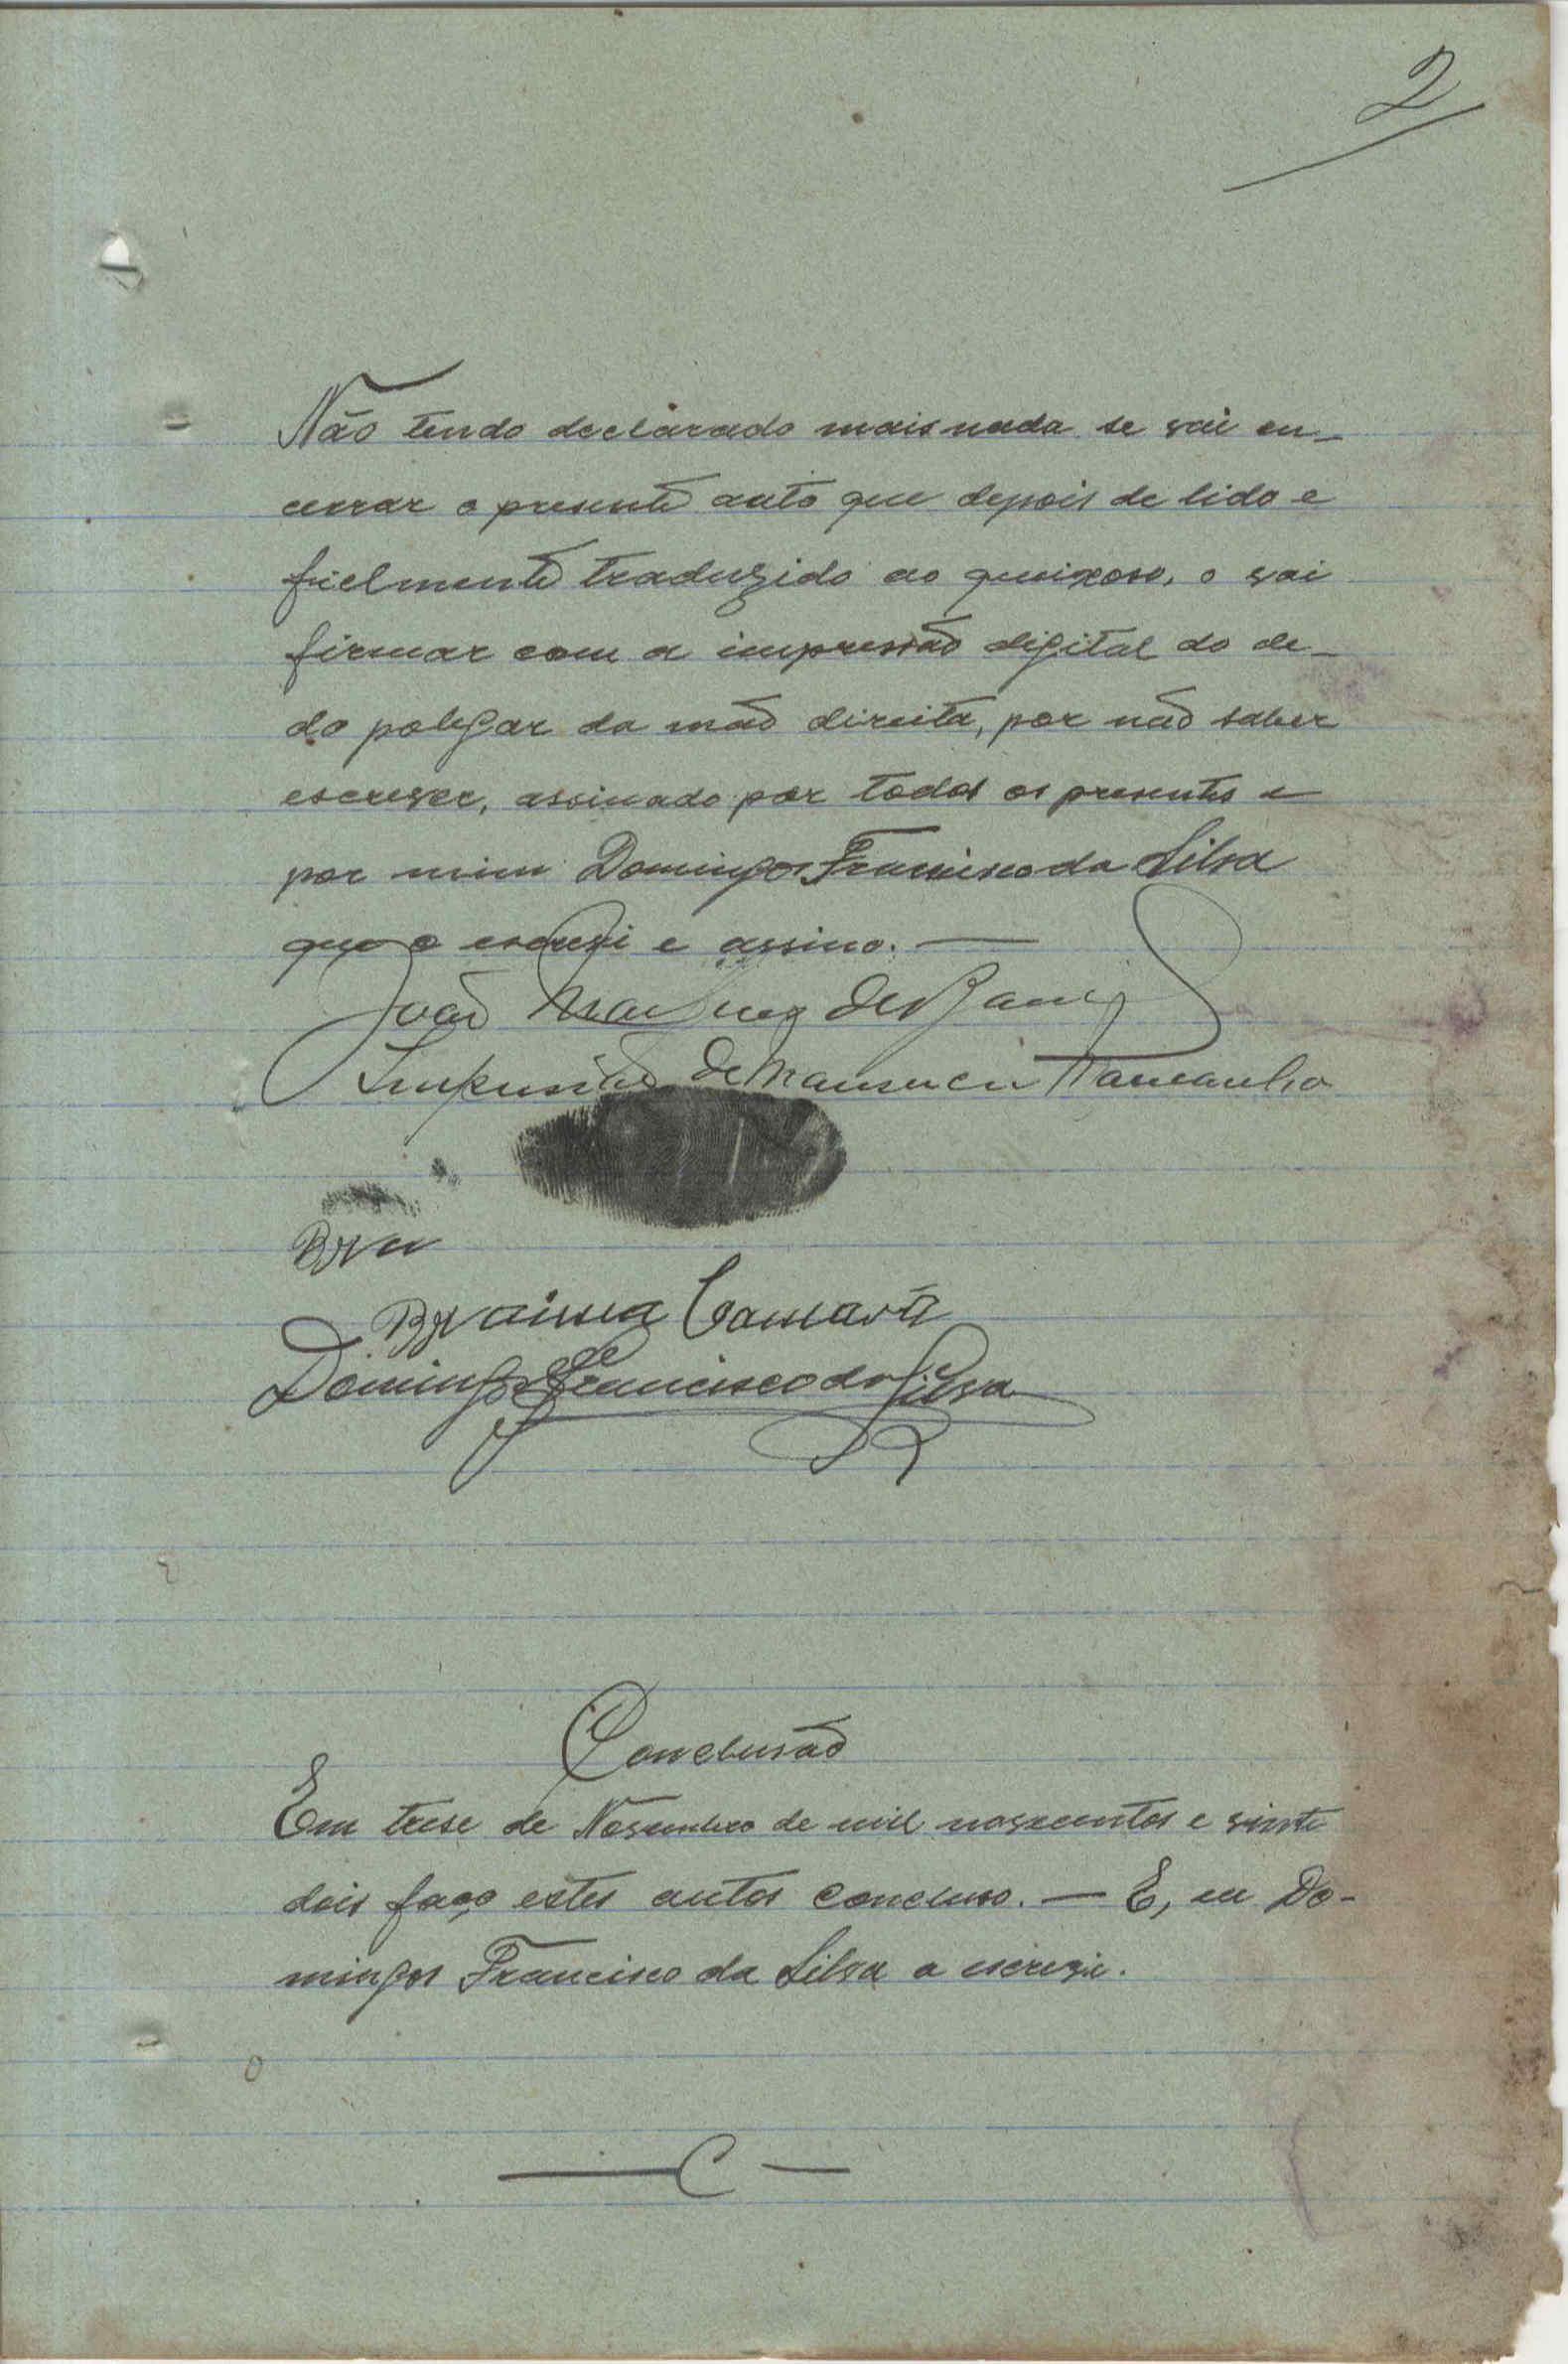 2
Não tendo declarado mais nada se vai en-
cerrar o presente auto que depois de lido e
fielmente traduzido ao queixoso, o vai
firmar com a impressão digital do de-
do polegar da mão direita, por não saber
escrever, assinado por todos os presentes e
por mim Domingos Francisco da Silva
que o escrevi e assino. —
João de
Impressão de
Bra
Braima Camará
Domingos Francisco da Silva
Conclusão
Em trese de Novembro de mil novecentos e vinte
dois faço estes autos concluso. — E, eu Do-
mingos Francisco da Silva o escrevi.
— C —